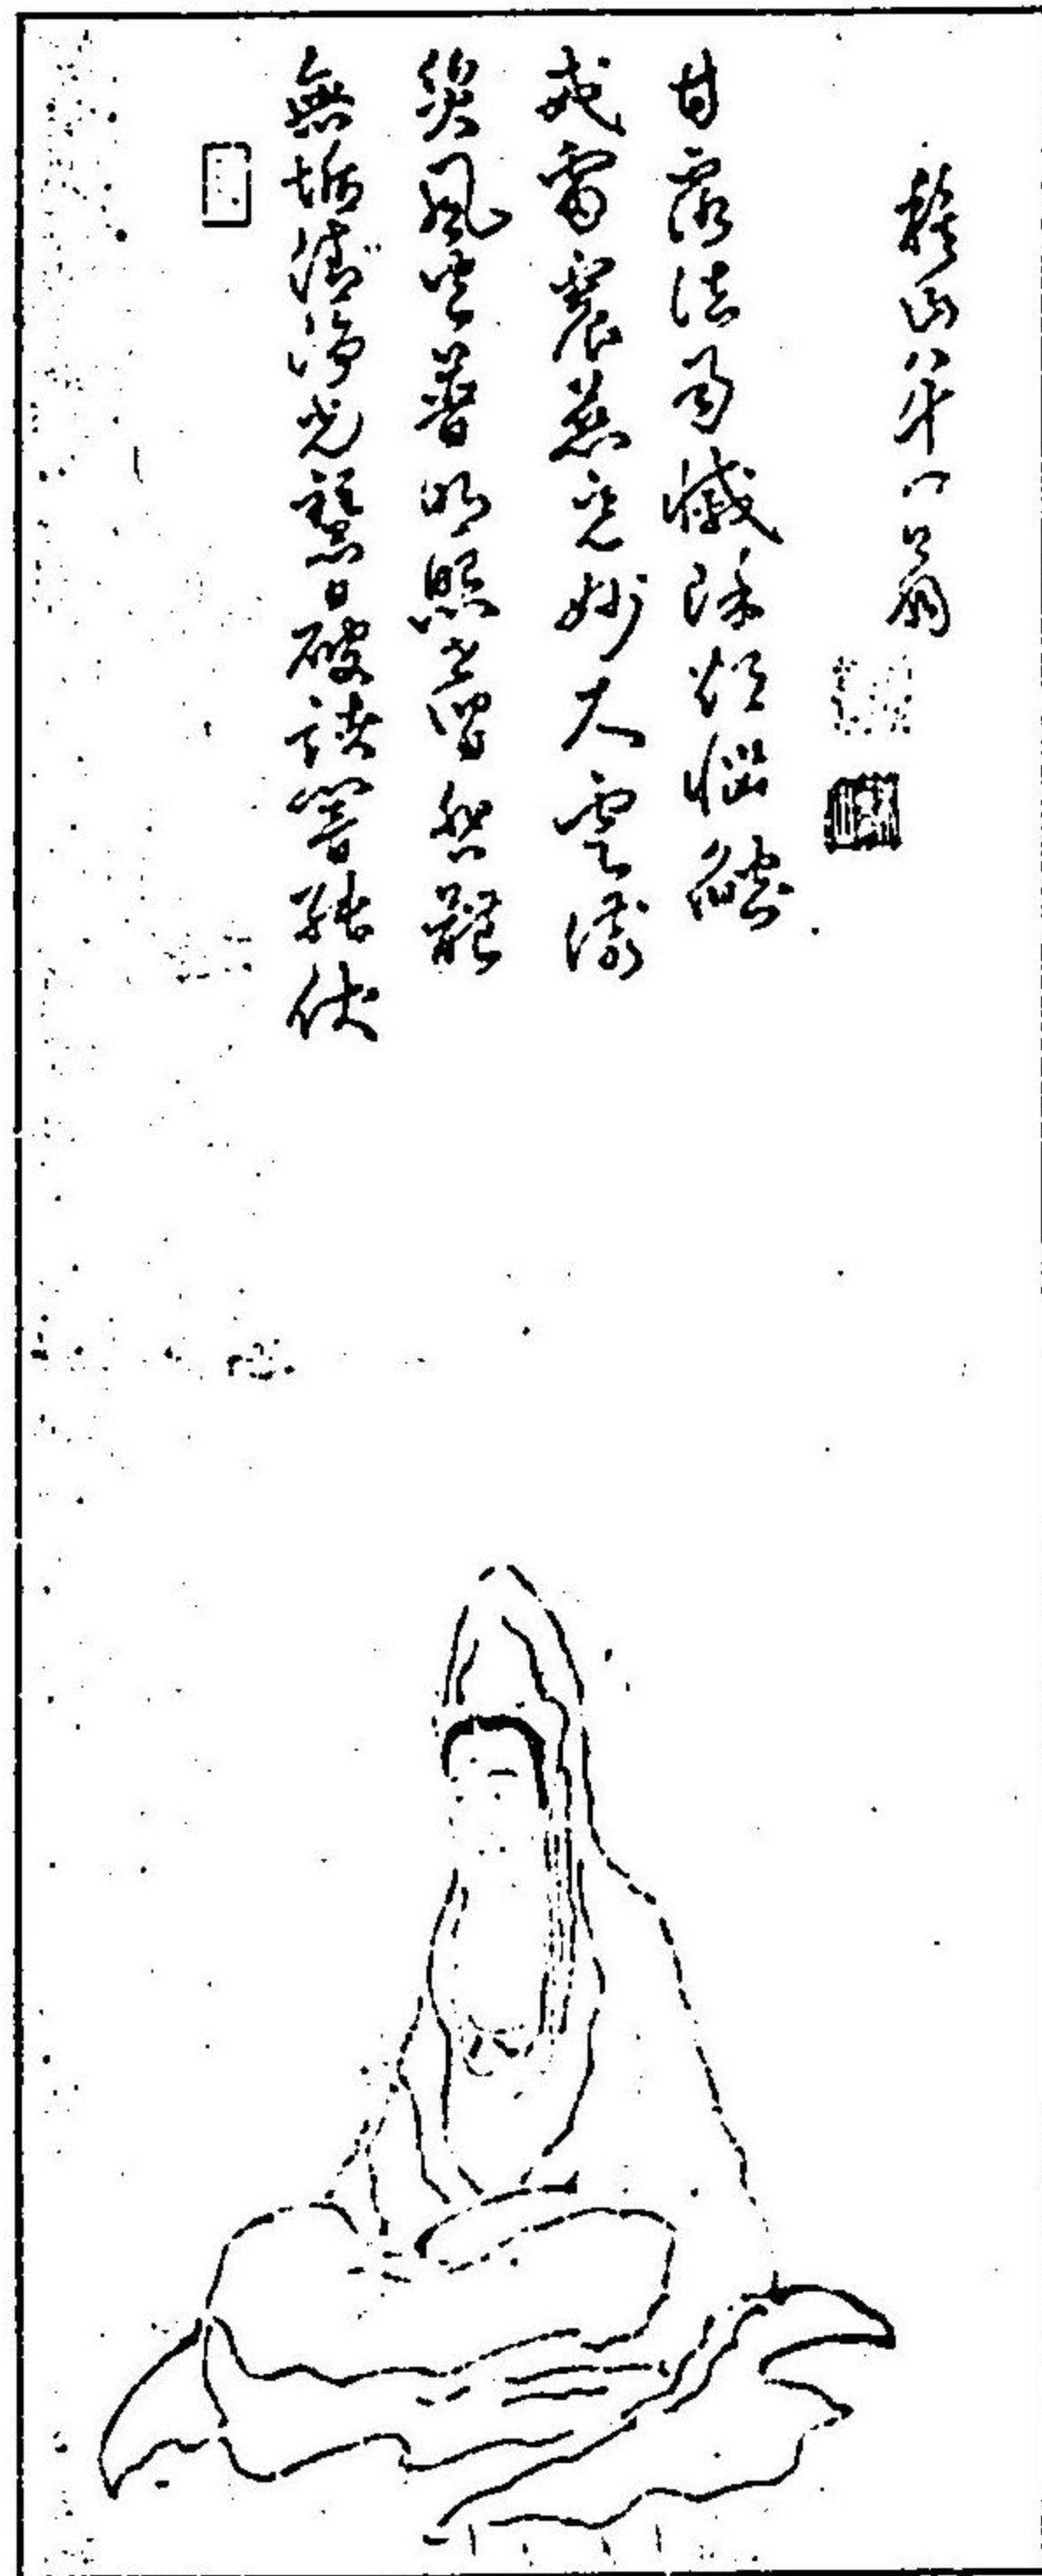 無垢清淨光慧日破諸闇能伏
災風火普明照世間悲體
戒雷震慈意妙大雲澍
甘露法雨滅除煩惱燄
山八十八翁